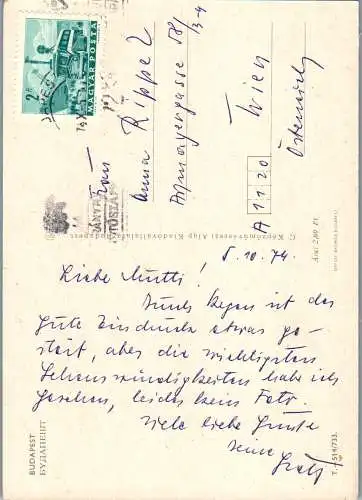 5.10.74.
Liebe Mutti!
Durch Regen ist der
gute Eindruck etwas ge-
stört, aber die wichtigsten
Sehenswürdigkeiten habe ich
gesehen, leider kein Foto.
Viele liebe Grüße
Deine
Frau
Anna Rippel
Armayergasse 58/
/3-4
A 1120 Wien
Österreich
2 Ft
MAGYAR POSTA
BUDAPEST
БУДАПЕШТ
T.-514/733.
Ára: 2,80 Ft.
© Képzőművészeti Alap Kiadóvállalata, Budapest